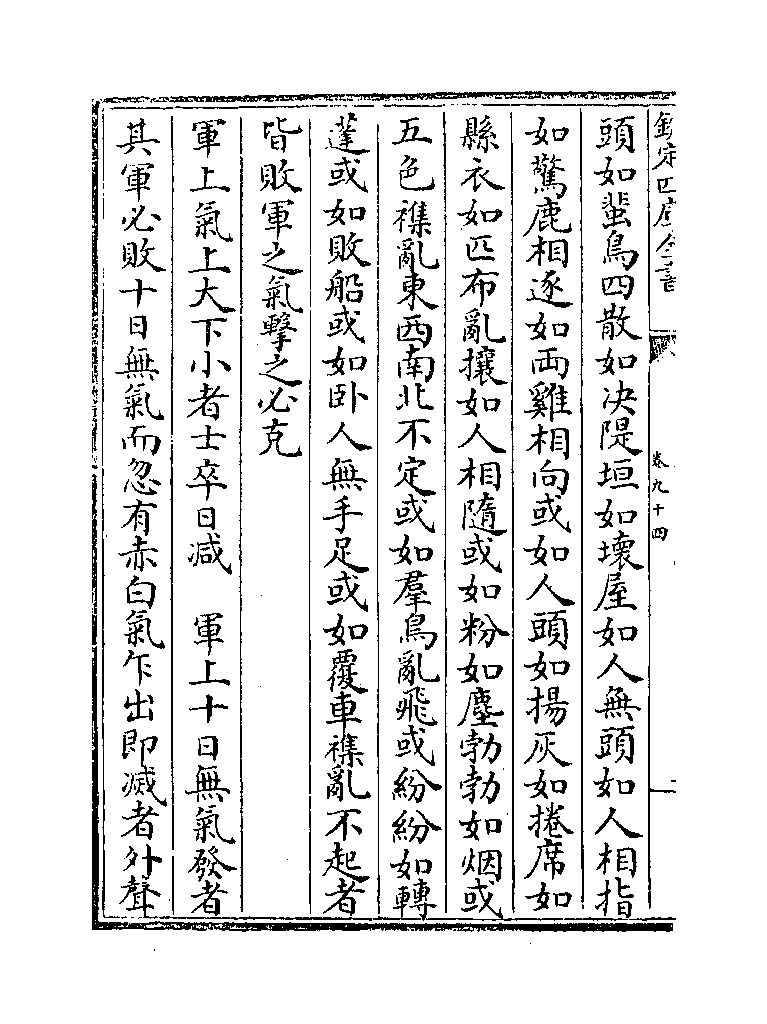 欽定四庫全書
卷九十四
頭如蜚鳥四散如决隄垣如壞屋如人無頭如人相指
如驚鹿相逐如兩雞相向或如人頭如揚灰如捲席如
縣衣如匹布亂攘如人相隨或如粉如塵勃勃如烟或
五色襍亂東西南北不定或如羣鳥亂飛或紛紛如轉
蓬或如敗船或如卧人無手足或如覆車襍亂不起者
皆敗軍之氣擊之必克
軍上氣上大下小者士卒日減　軍上十日無氣發者
其軍必敗十日無氣而忽有赤白氣乍出即滅者外聲